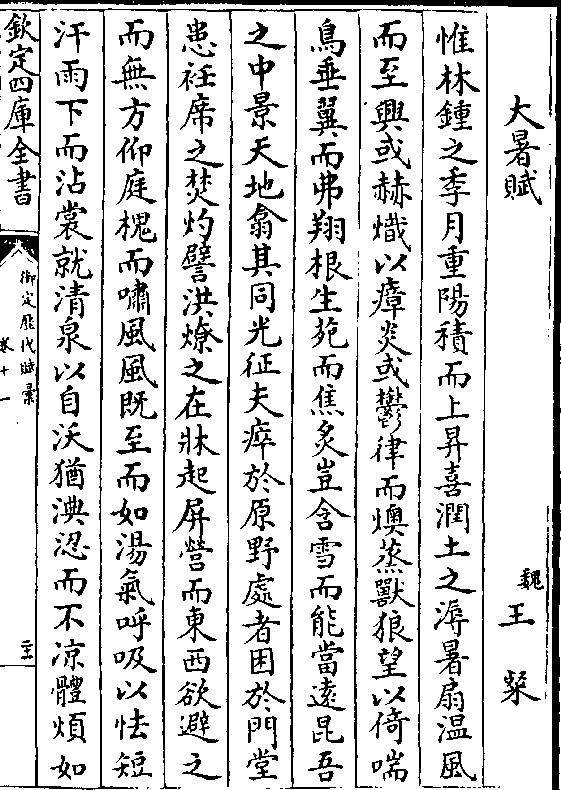 大暑賦
魏王粲
惟林鍾之季月重陽積而上昇喜潤土之溽暑扇温風
而至興或赫熾以癉炎或鬱律而燠蒸獸狼望以倚喘
鳥垂翼而弗翔根生苑而焦炙豈含雪而能當遠昆吾
之中景天地翕其同光征夫瘁於原野處者困於門堂
患衽席之焚灼譬洪燎之在牀起屏營而東西欲避之
而無方仰庭槐而嘯風風既至而如湯氣呼吸以怯短
汗雨下而沾裳就清泉以自沃猶淟涊而不凉體煩如
欽定四庫全書
御定歷代賦彙
卷十一